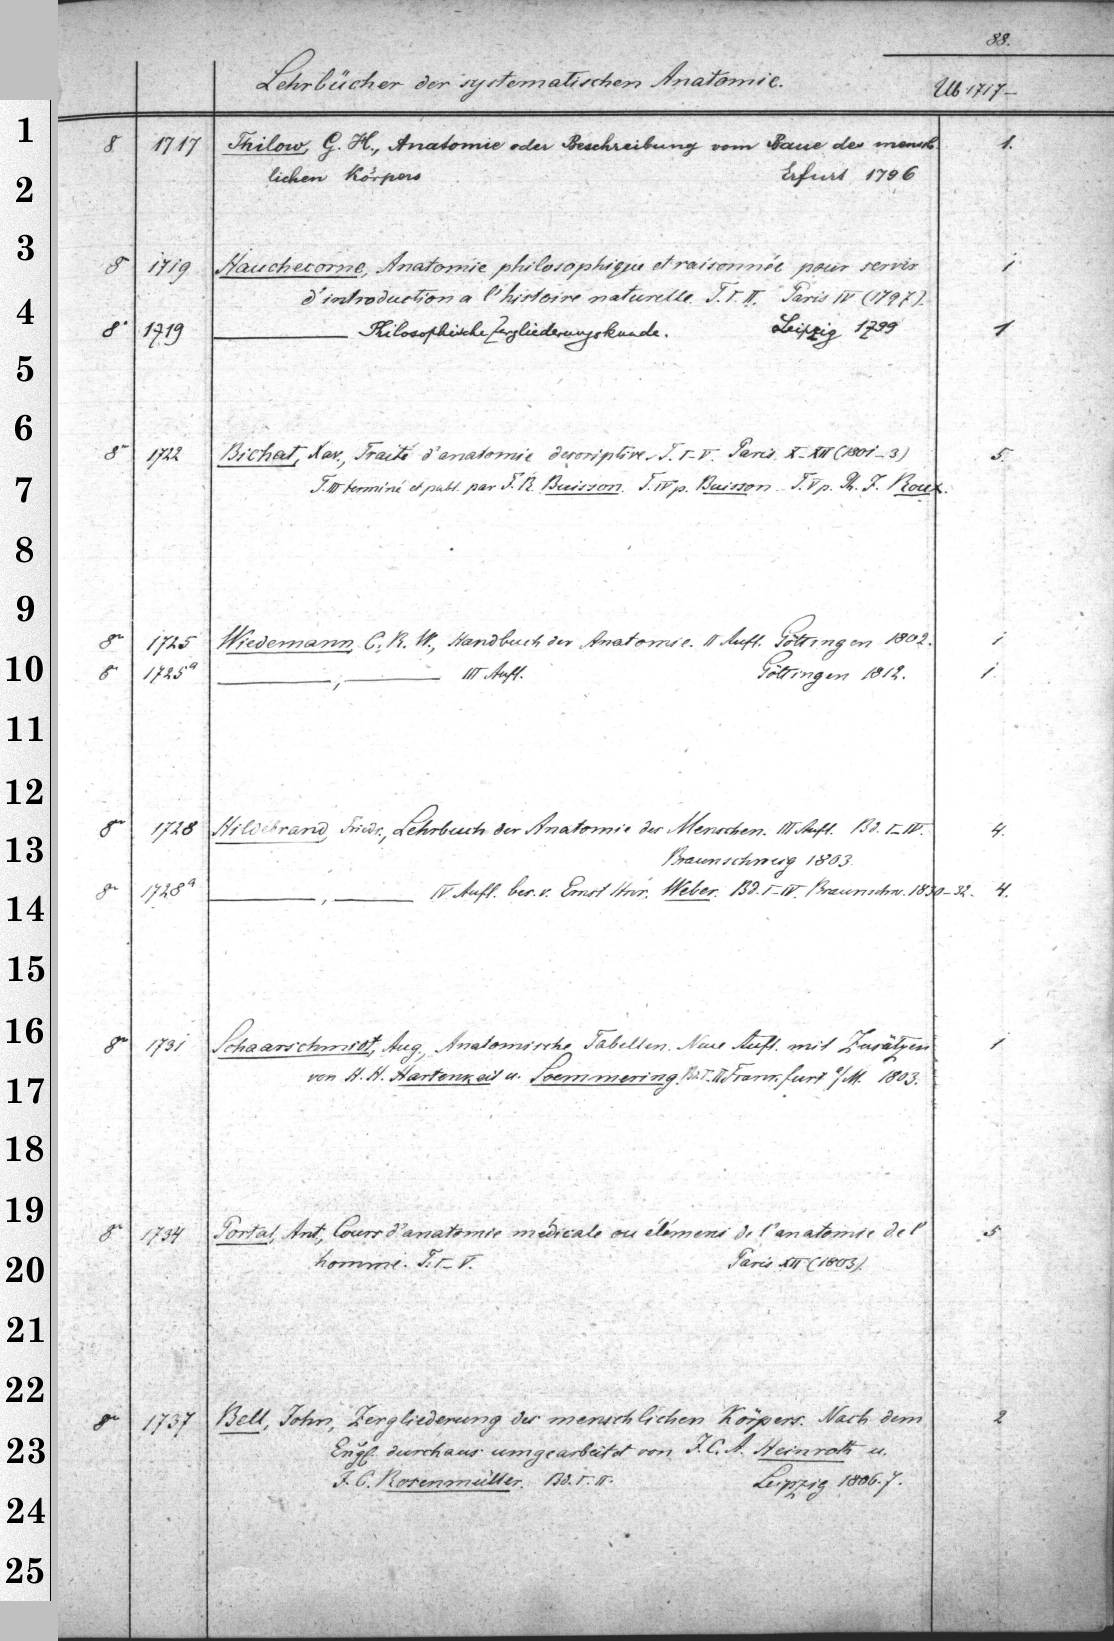 88.
Lehrbücher der systematischen Anatomie. Ub 1717-
8 1717 Thilow, G. H., Anatomie oder Beschreibung vom Baue des mensch 1.
lichen Körpers Erfurt 1796
8° 1719 Hauchecorne, Anatomie philosophique et raisonnée pour servir 1
d'introduction a l'histoire naturelle. T. I. II. Paris IV (1797).
8° 1719 ——— Philosophische Zergliederungskunde. Leipzig 1799 1
8° 1722 Bichat, Xav., Traité d'anatomie descriptive. T. I-V. Paris X-XII (1801-3) 5.
T. III terminé et publ. par F. R. Buisson. T. IV p. Buisson T. V p. Ph. J. Roux.
8° 1725 Wiedemann, C. R. W., Handbuch der Anatomie. II Aufl. Göttingen 1802. 1
8 1725a ———, ——— III Aufl. Göttingen 1812. 1.
8° 1728 Hildebrand, Friedr., Lehrbuch der Anatomie des Menschen. III Aufl. Bd. I-IV. 4.
Braunschweig 1803.
8° 1728a ———, ——— IV Aufl. bes. v. Ernst Hnr. Weber. Bd. I-IV. Braunschw. 1830-32. 4.
8° 1731 Schaarschmidt, Aug., Anatomische Tabellen. Neue Aufl. mit Zusätzen 1
von H. H. Hartenkeil u. Soemmering. Bd. I. II Frankfurt a/M. 1803.
8° 1734 Portal, Ant., Cours d'anatomie médicale ou élémens de l'anatomie de l' 5
homme. T. I-V. Paris XII (1803).
8° 1737 Bell, John, Zergliederung des menschlichen Körpers. Nach dem 2
Engl. durchaus umgearbeitet von J. C. A. Heinroth u.
J. C. Rosenmüller. Bd. I. II. Leipzig 1806.7.
1
2
3
4
5
6
7
8
9
10
11
12
13
14
15
16
17
18
19
20
21
22
23
24
25